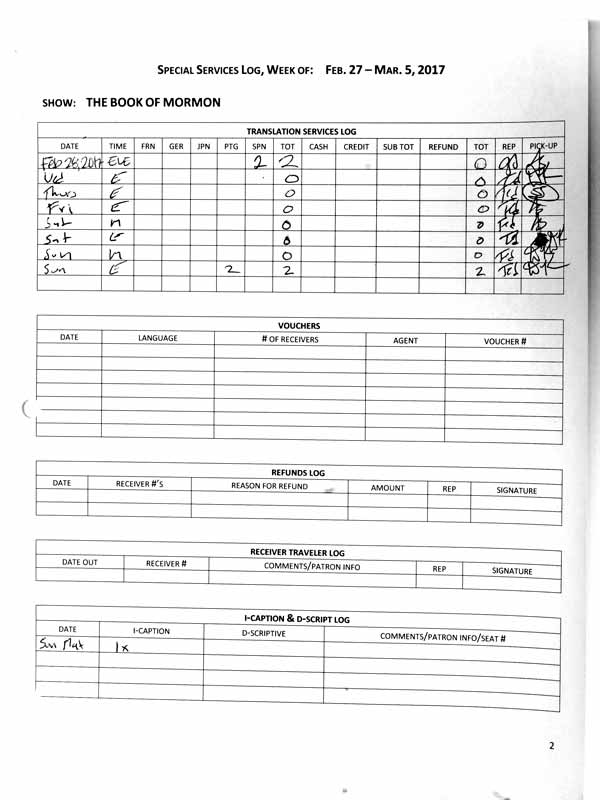 SPECIAL SERVICES LOG, WEEK OF: FEB. 27 – MAR. 5, 2017
SHOW: THE BOOK OF MORMON
TRANSLATION SERVICES LOG
DATE TIME FRN GER JPN PTG SPN TOT CASH CREDIT SUB TOT REFUND TOT REP PICK-UP
Feb 28, 2017 EVE 2 2 0
Wd E 0 0 Td
Thurs E 0 0 Td
Fri E 0 0 Td
Sat n 0 0 Td
Sat E 0 0 Td
Sun n 0 0 Td
Sun E 2 2 2 Td
VOUCHERS
DATE LANGUAGE # OF RECEIVERS AGENT VOUCHER #
REFUNDS LOG
DATE RECEIVER #'S REASON FOR REFUND AMOUNT REP SIGNATURE
RECEIVER TRAVELER LOG
DATE OUT RECEIVER # COMMENTS/PATRON INFO REP SIGNATURE
I-CAPTION & D-SCRIPT LOG
DATE I-CAPTION D-SCRIPTIVE COMMENTS/PATRON INFO/SEAT #
Sun Mat 1x
2